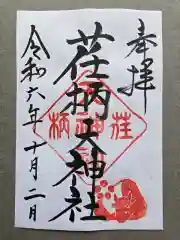 奉拝
荏柄天神社
令和六年十月二日
荏柄天神社